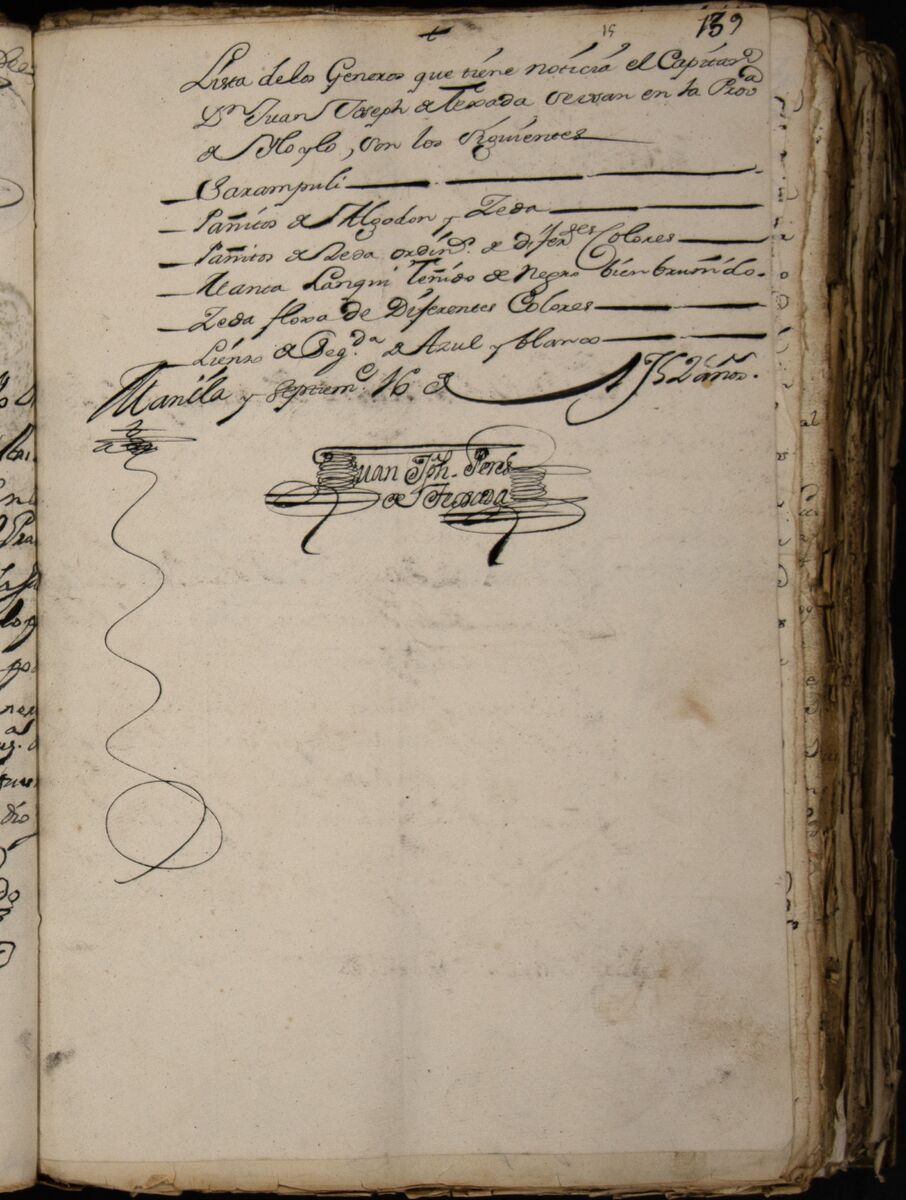 15
139
Lista delos Generos que tiene noticia el Capitan
Dn Juan Joseph de Texada se usan en la Prova
de Yloylo, son los siguientes
Saxampuli
Pañitos de Algodon y Zeda
Pañitos de Zeda ordins. de diferes Colores
Manta Lanqui teñido de Negro bien bruñido.
Zeda floxa de Diferentes Colores
Lienzo de Segda de Azul y blanco
Manila y Septieme. 16 de 1752 años.
Juan Jph. Peres
de Texada